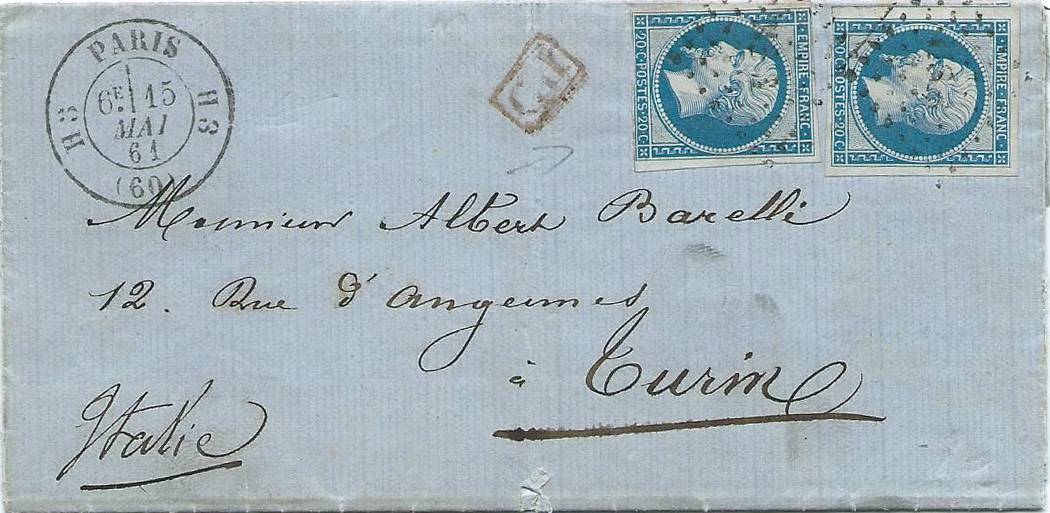 PARIS
HS HS
6E 15
MAI
61
(60)
P.D.
EMPIRE FRANC.
20C POSTES 20C
EMPIRE FRANC.
20C POSTES 20C
Monsieur Albert Barelli
12. Rue d'Angennes
à Turin
Italie